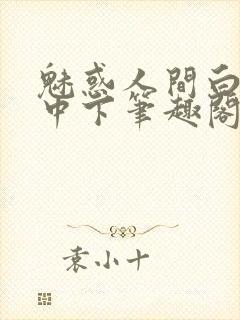 魅惑人間白
中下筆趣閣
袁小十